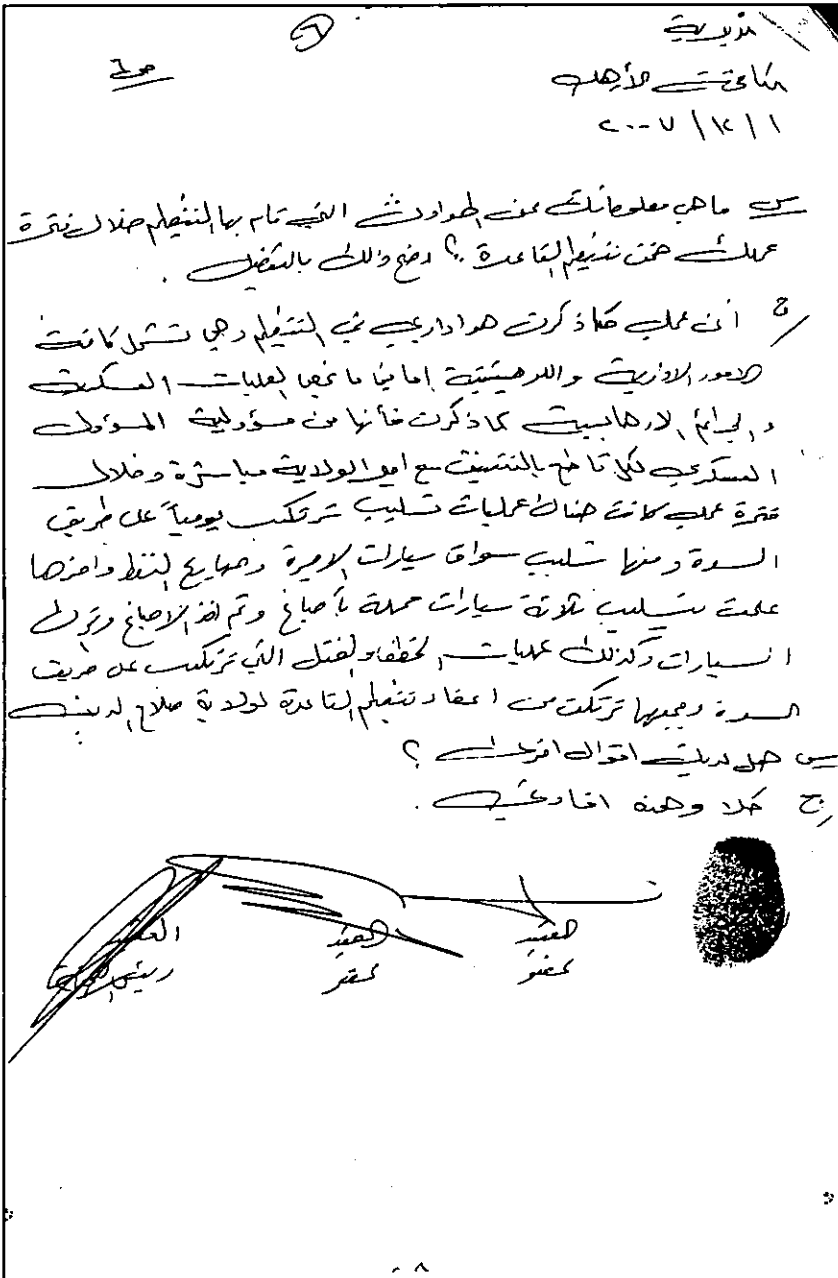 مديرية
مكافحة الإرهاب
٢٠٠٧/١٢/١
ص٦
٦
س ما هي معلوماتك عن الحوادث التي قام بها التنظيم خلال فترة
عملك ضمن تنظيم القاعدة ؟ وضح ذلك بالتفصيل .
ج أن عملي كما ذكرت هو اداري في التنظيم وهي تشمل كافة
الامور الادارية واللوجستية اما فيما يخص العمليات العسكرية
والجرائم الارهابية كما ذكرت فأنها من مسؤولية المسؤول
العسكري لكل قاطع بالتنسيق مع امير الولاية مباشرة وخلال
فترة عملي كانت هناك عمليات تسليب ترتكب يومياً على طريق
السدة ومنها تسليب سواق سيارات الاجرة وصهاريج النفط واخرها
علمت بتسليب ثلاثة سيارات محملة بأصباغ وتم اخذ الاصباغ وترك
السيارات وكذلك عمليات الخطف والقتل التي ترتكب على طريق
السدة وجميعها ترتكب من اعضاء تنظيم القاعدة لولاية صلاح الدين
س هل لديك اقوال اخرى ؟
ج كلا وهذه افادتي .
العقيد العقيد
عضو عضو
رئيس
٨